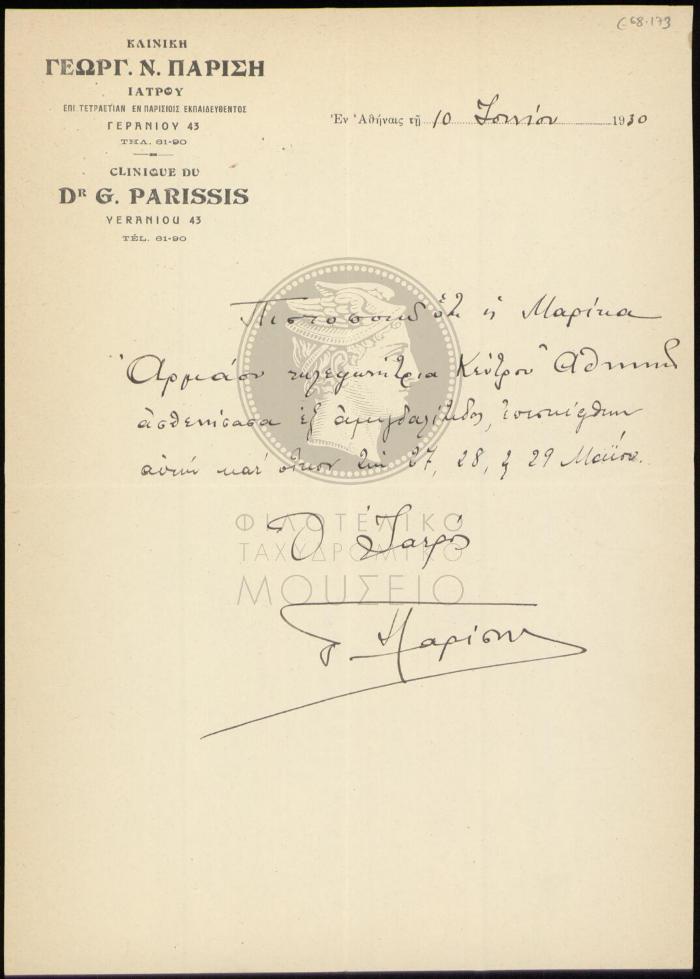 6 68-173
ΚΛΙΝΙΚΗ
ΓΕΩΡΓ. Ν. ΠΑΡΙΣΗ
ΙΑΤΡΟΥ
ΕΠΙ ΤΕΤΡΑΕΤΙΑΝ ΕΝ ΠΑΡΙΣΙΟΙΣ ΕΚΠΑΙΔΕΥΘΕΝΤΟΣ
ΓΕΡΑΝΙΟΥ 43
ΤΗΛ. 61-90
CLINIQUE DU
DR G. PARISSIS
YERANIOU 43
TÉL. 61-90
Ἐν Ἀθήναις τῇ 10 Ἰουνίου 1930
Πιστοποιῶ ὅτι ἡ Μαρίκα
τηλεφωνήτρια Κέντρου Ἀθηνῶν
ἀσθενήσασα ἐξ ἀμυγδαλίτιδος, ἐπεσκέφθην
αὐτήν κατ' οἶκον τὴν 27, 28, & 29 Μαΐου.
Ὁ Ἰατρός
Γ. Παρίσης
ΦΙΛΟΤΕΛΙΚΟ
ΤΑΧΥΔΡΟΜΙΚΟ
ΜΟΥΣΕΙΟ